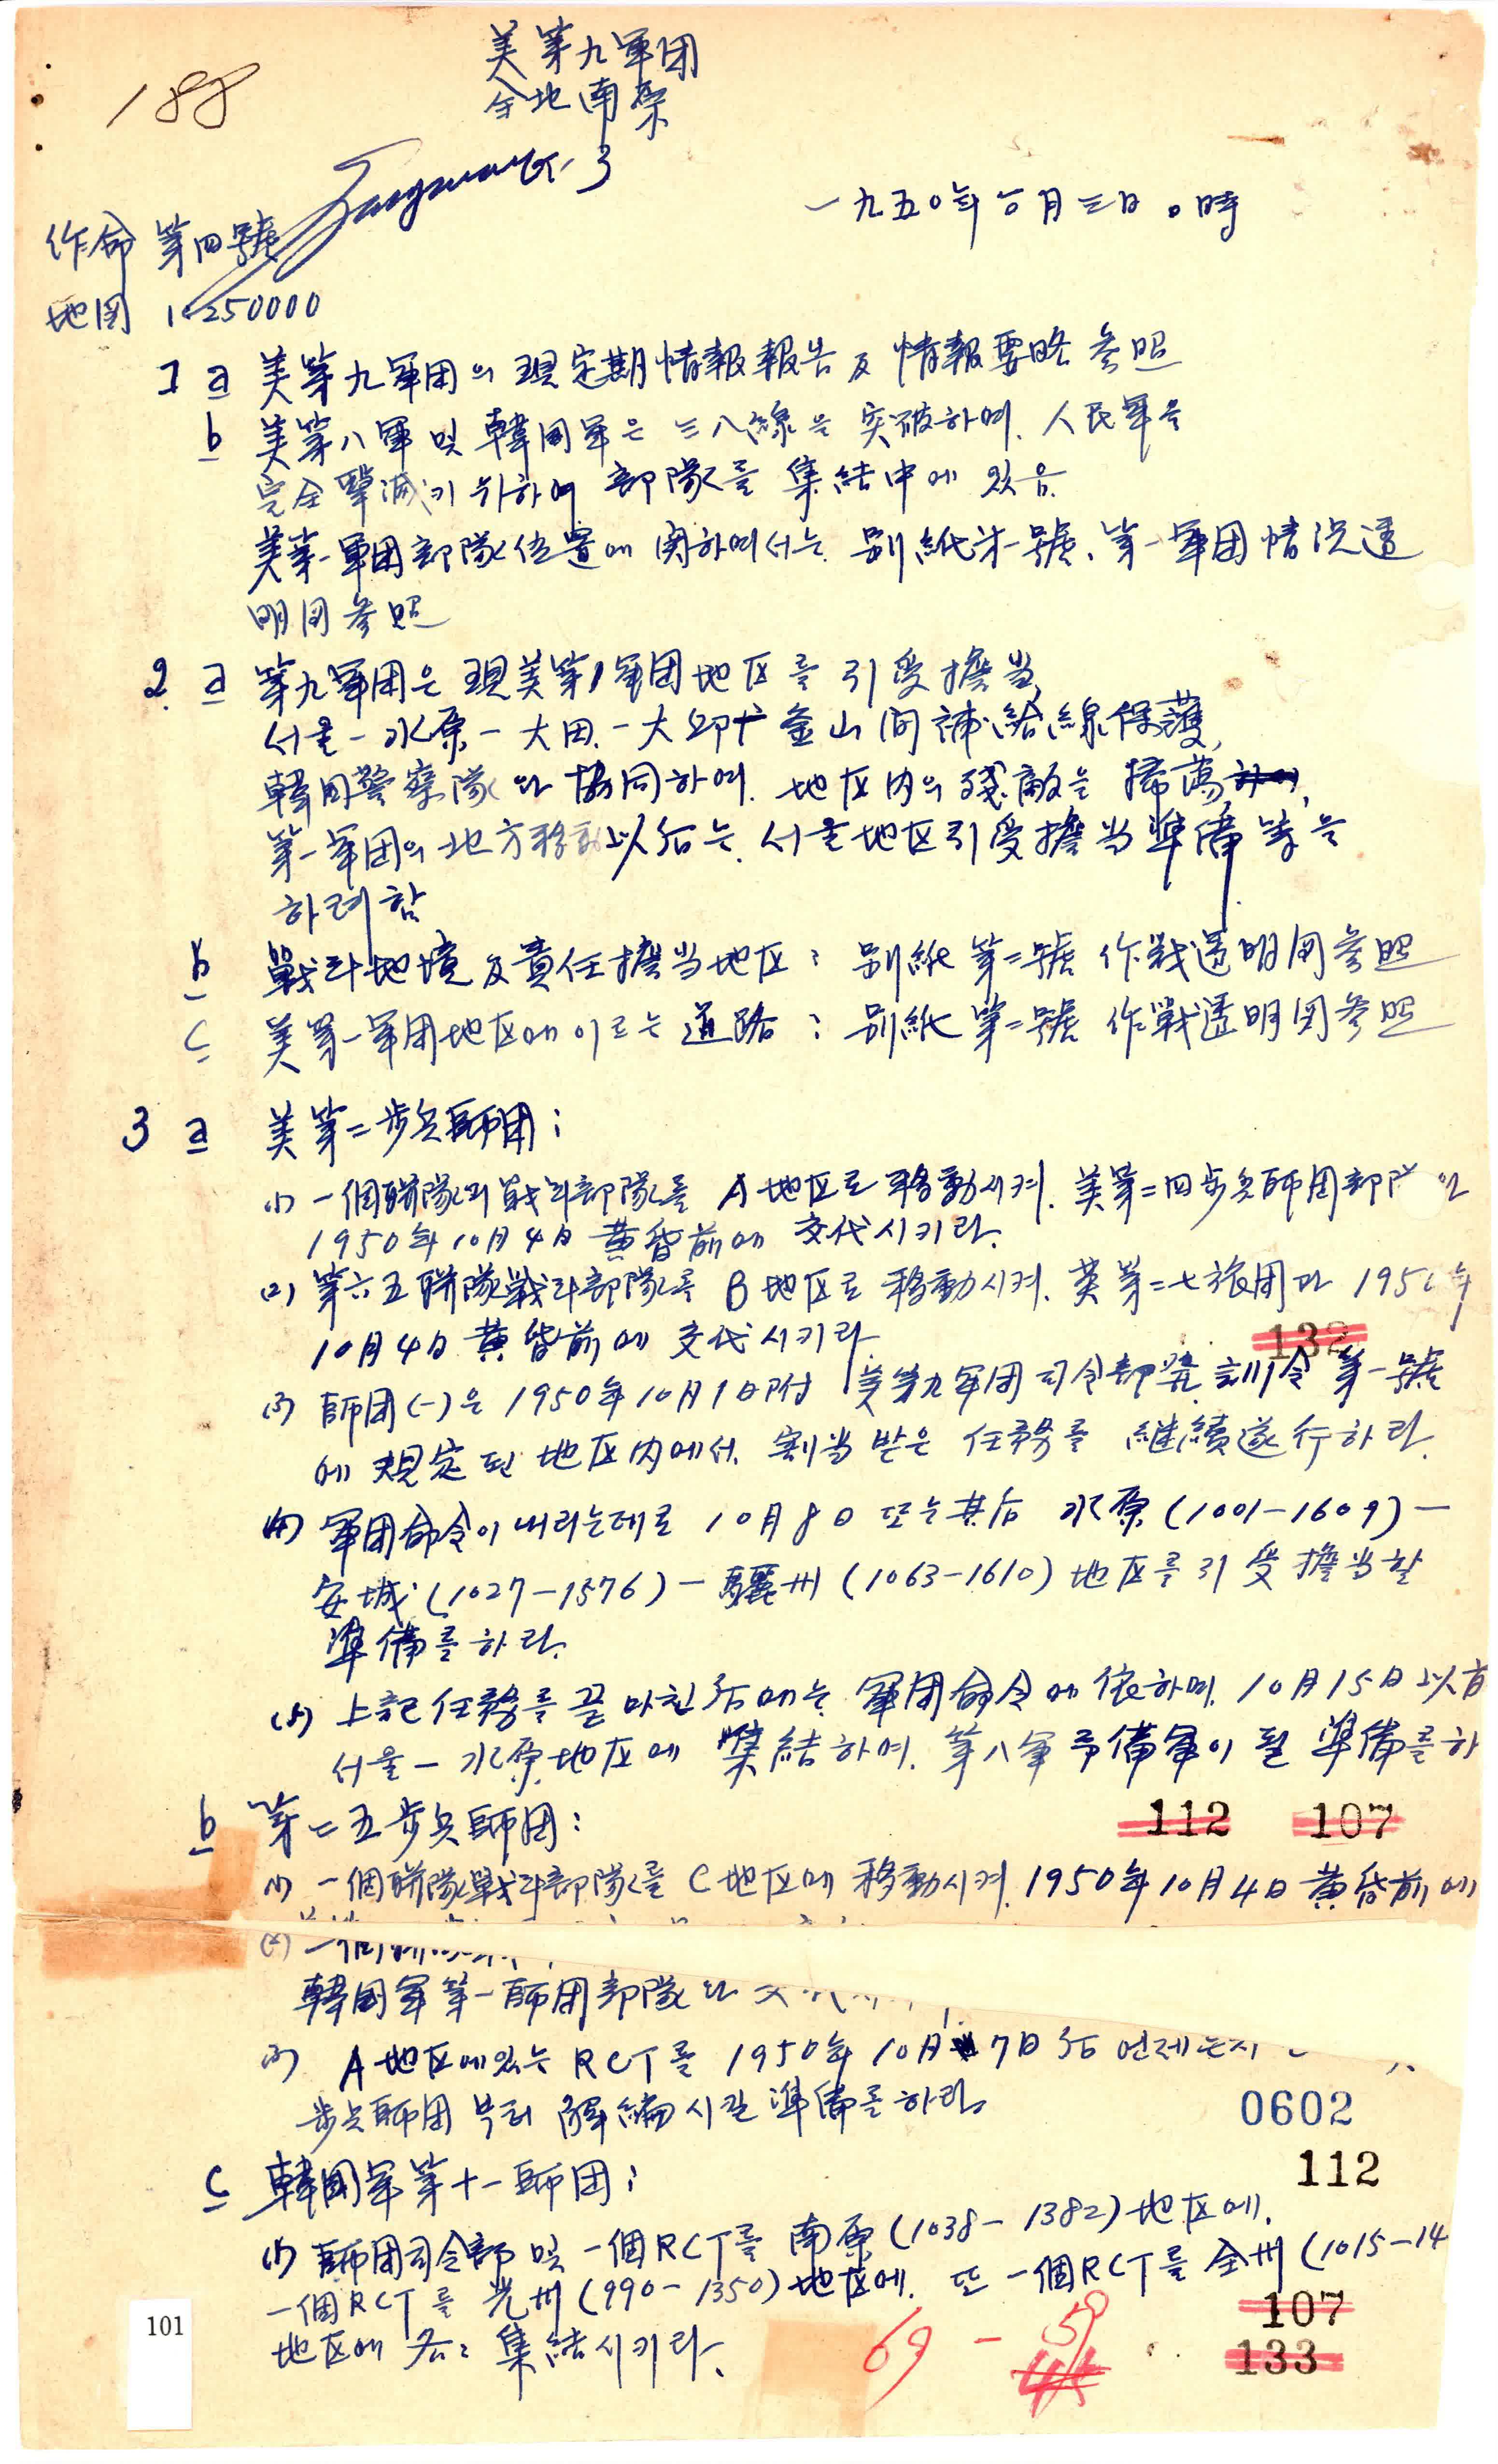 188
美第九軍团
全地南宋
3
一九五〇年六月三日 〇時
作命 第四號
地図 1:250000
1 a 美第九軍团의 現定期情報報告 及 情報要略 参照
b 美第八軍 및 韓国軍은 三八線을 突破하며. 人民軍을
完全擊滅키 위하여 部隊를 集結中에 있음.
美第一軍团部隊位置에 関하여서는 別紙第一號、第一軍团情況透
明図参照
2. a 第九軍团은 現美第1軍团地区를 引受擔当,
서울-水原-大田-大邱 釜山间補給線保護,
韓国警察隊와 協同하여. 地区内의 殘敵을 掃蕩
第一軍团의 地方移動以后는. 서울地区引受擔当準備等을
하려함
b 戰斗地境及責任擔当地区: 別紙第二號 作戰透明図参照
c 美第一軍团地区에이르는道路: 別紙第二號 作戰透明図参照
3 a 美第二步兵師团:
(1) 一個聯隊의戰斗部隊를 A地区로移動시켜. 美第二四步兵師团部隊와
1950年10月4日 黄昏前에 交代시키라.
(2) 第六五聯隊戰斗部隊를 B地区로 移動시켜. 英第二七旅团과 1950年
10月4日 黄昏前에 交代시키라
132
(3) 師团(-)은 1950年10月1日附 美第九軍团司令部発訓令第一號
에 規定된 地区内에서. 割当받은 任務를 継續遂行하라.
(4) 軍团命令이내리는데로 10月8日 또는其后 水原(1001-1609)-
安城(1027-1576)-驪州(1063-1610)地区를引受擔当할
準備를하라.
(5) 上記任務를끝마친后에는. 軍团命令에依하여. 10月15日以
서울-水原地区에 集結하여. 第八軍予備軍이될 準備를하
b 第二五步兵師团:
112 107
(1) 一個聯隊戰斗部隊를 C地区에 移動시켜. 1950年10月4日 黄昏前에
(2) 一個
韓国軍第一師团部隊와
(3) A地区에있는 RCT를 1950年10月 7日后 언제든지
步兵師团부터 解編시킬準備를하라.
0602
112
c 韓国軍第十一師团:
(1) 師团司令部 및 一個RCT를 南原(1038-1382)地区에.
一個RCT를 光州(990-1350)地区에. 또 一個RCT를 全州(1015-14
107
地区에 各各 集結시키라.
69 - 59
133
101